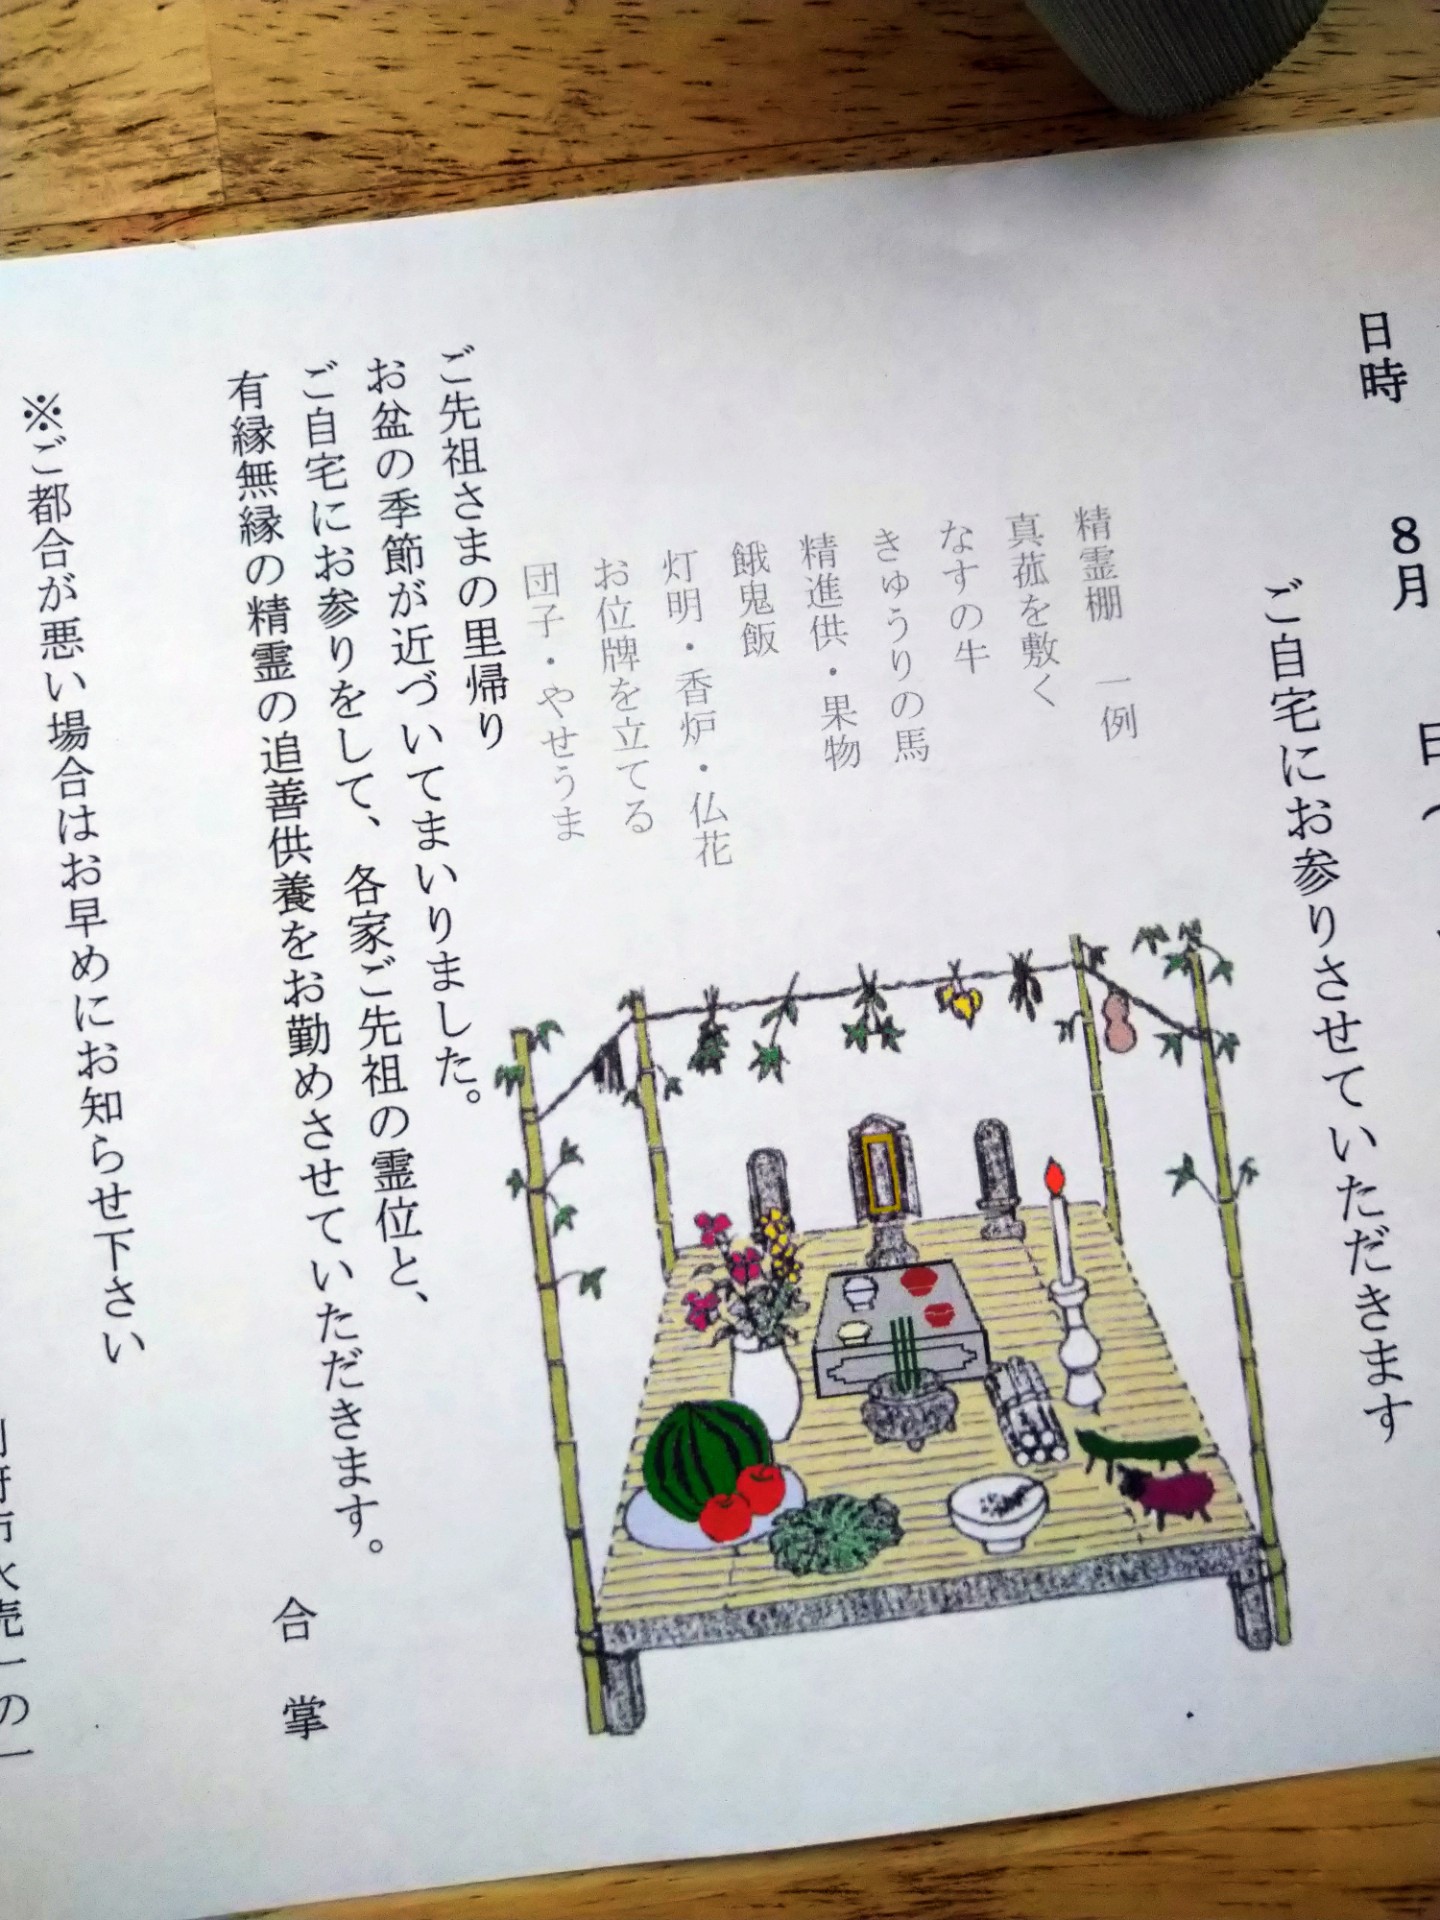 日時　8月　日（
ご自宅にお参りさせていただきます
精霊棚　一例
真菰を敷く
なすの牛
きゅうりの馬
精進供・果物
餓鬼飯
灯明・香炉・仏花
お位牌を立てる
団子・やせうま
ご先祖さまの里帰り
お盆の季節が近づいてまいりました。
ご自宅にお参りをして、各家ご先祖の霊位と、
有縁無縁の精霊の追善供養をお勤めさせていただきます。
合　掌
※ご都合が悪い場合はお早めにお知らせ下さい